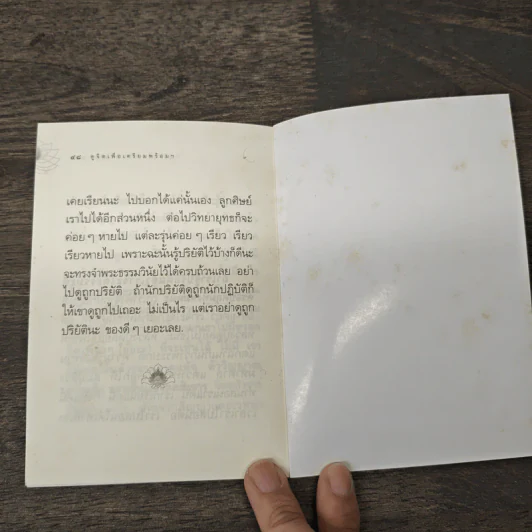 ๔๘ ดูจิตเพื่อเตรียมพร้อมฯ
เคยเรียนนะ ไปบอกได้แค่นั้นเอง ลูกศิษย์
เราไปได้อีกส่วนหนึ่ง ต่อไปวิทยายุทธก็จะ
ค่อยๆ หายไป แต่ละรุ่นค่อยๆ เรียว เรียว
เรียวหายไป เพราะฉะนั้นรู้ปริยัติไว้บ้างก็ดีนะ
จะทรงจำพระธรรมวินัยไว้ได้ครบถ้วนเลย อย่า
ไปดูถูกปริยัติ ถ้านักปริยัติดูถูกนักปฏิบัติก็
ให้เขาดูถูกไปเถอะ ไม่เป็นไร แต่เราอย่าดูถูก
ปริยัตินะ ของดีๆ เยอะเลย.